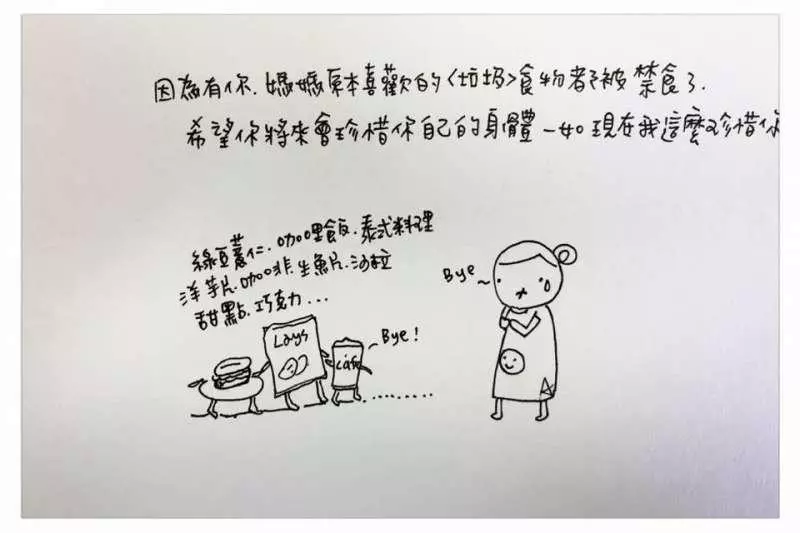 因為有你.媽媽原本喜歡的<垃圾>食物都被禁食了.
希望你將來會珍惜你自己的身體一如現在我這麼珍惜你
綠豆薏仁.咖哩飯.泰式料理
洋芋片.咖啡.生魚片.沙拉
甜點.巧克力...
Bye
Lays
café
Bye!